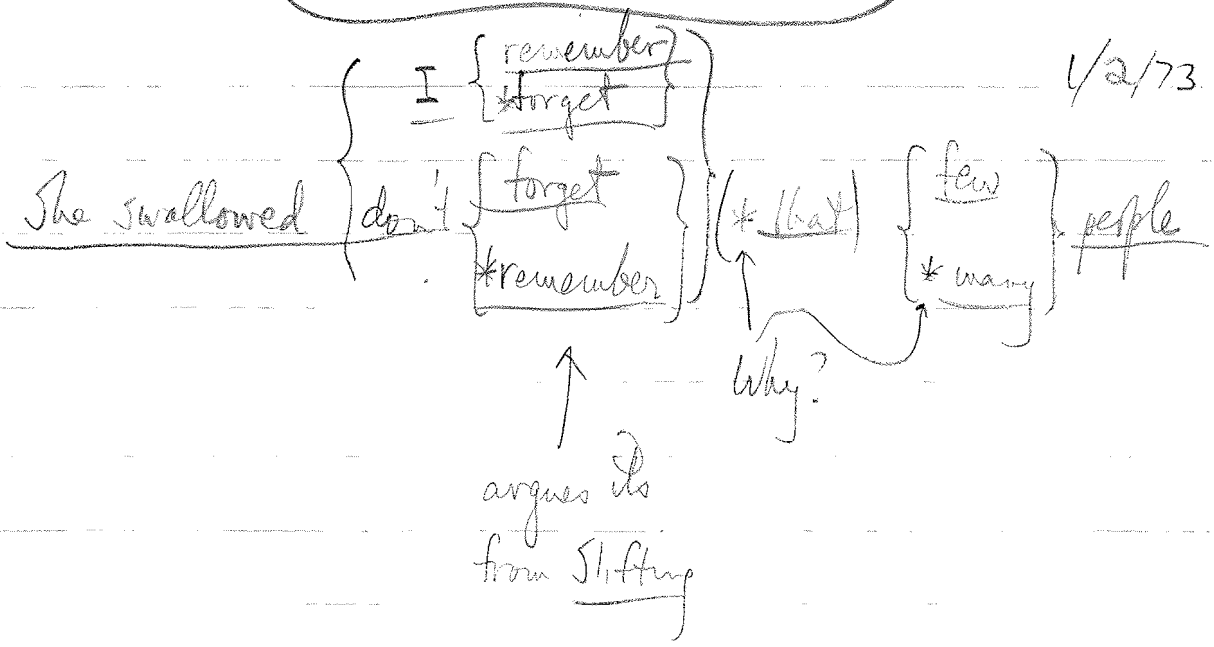 1/2/73
She swallowed { I { remember / *forget } / don't { forget / *remember } } (*that) { few / *many } people
Why?
argues it's
from Slifting